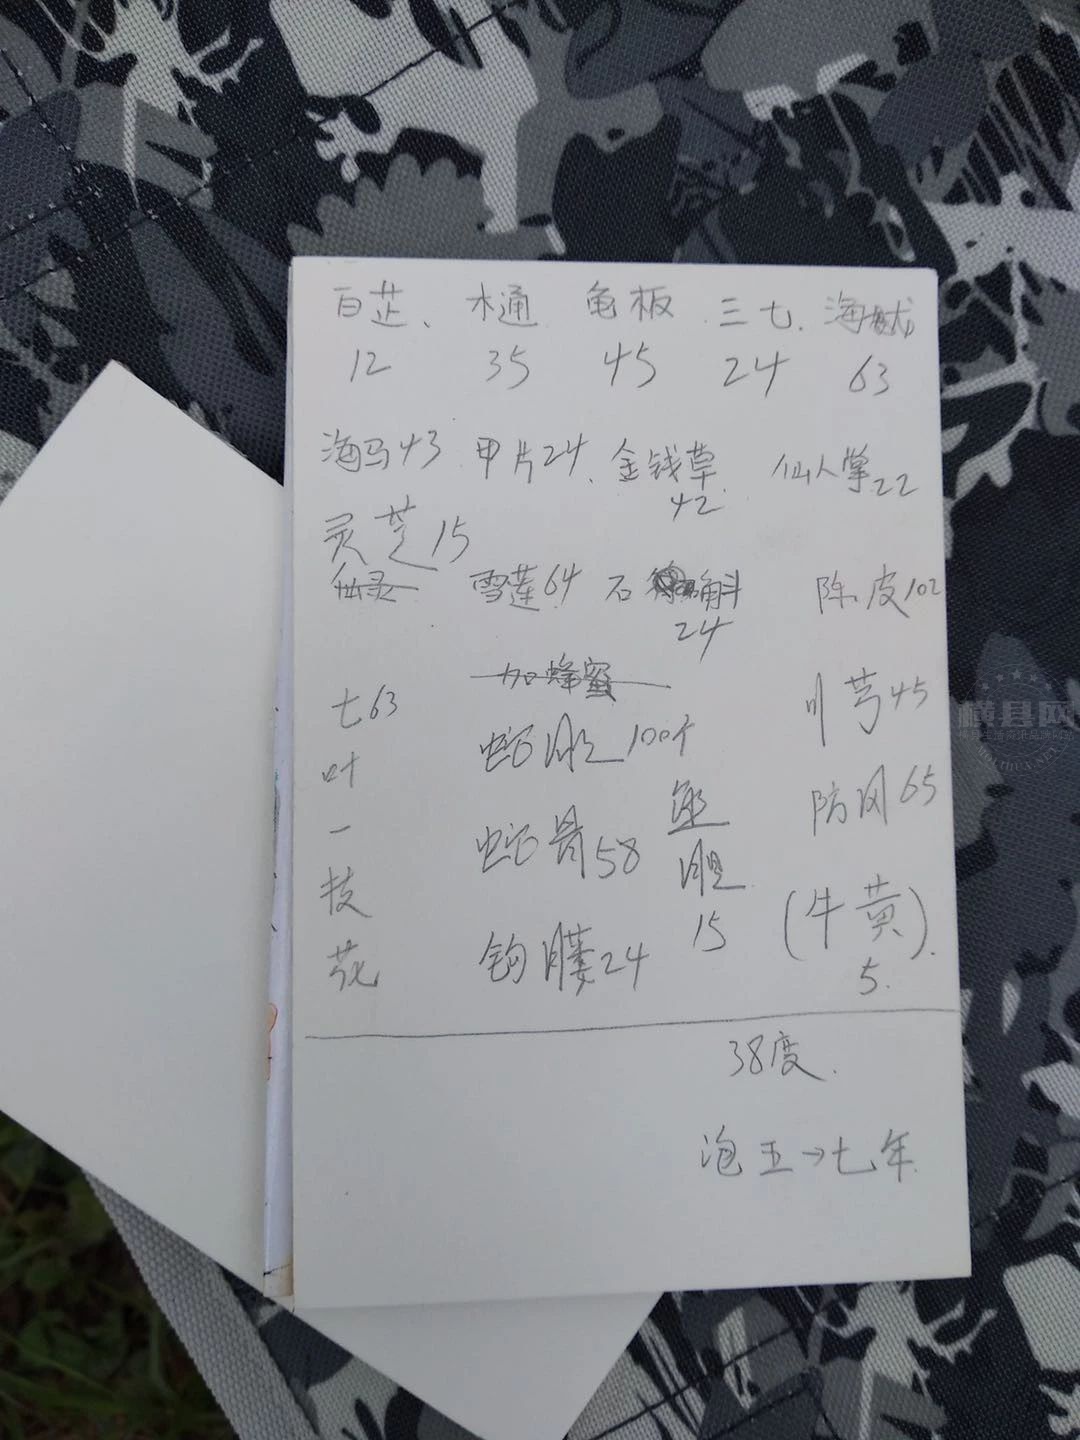 白芷、木通 龟板 三七、海马
12 35 45 24 63
海马43 甲片24、金钱草 仙人掌22
42
灵芝15
仙灵 雪莲64 石斛 陈皮102
24
加蜂蜜
七63 川芎45
叶 蛇胆100个
一 蛇骨58 鱼 防风65
技 胆
花 钩藤24 15 (牛黄).
5.
38度.
泡五→七年
横县网